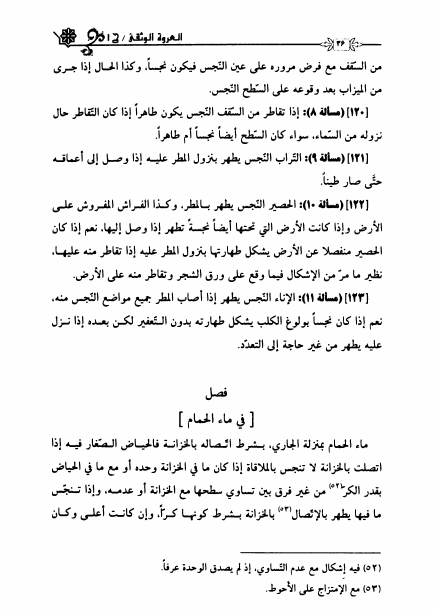 ٣۶
العروة الوثقى / ج١
من السّقف مع فرض مروره على عين النّجس فيكون نجساً، وكذا الحال إذا جرى
من الميزاب بعد وقوعه على السّطح النّجس.
[١٢٠] (مسألة ٨): إذا تقاطر من السّقف النّجس يكون طاهراً إذا كان التّقاطر حال
نزوله من السّماء، سواء كان السّطح أيضاً نجساً أم طاهراً.
[١٢١] (مسألة ٩): التّراب النّجس يطهر بنزول المطر عليه إذا وصل إلى أعماقه
حتّى صار طيناً.
[١٢٢] (مسألة ١٠): الحصير النّجس يطهر بالمطر، وكذا الفراش المفروش على
الأرض وإذا كانت الأرض التي تحتها أيضاً نجسة تطهر إذا وصل إليها، نعم إذا كان
الحصير منفصلا عن الأرض يشكل طهارتها بنزول المطر عليه إذا تقاطر منه عليها،
نظير ما مرّ من الإشكال فيما وقع على ورق الشجر وتقاطر منه على الأرض.
[١٢٣] (مسألة ١١): الإناء النّجس يطهر إذا أصاب المطر جميع مواضع النّجس منه،
نعم إذا كان نجساً بولوغ الكلب يشكل طهارته بدون التّعفير لكن بعده إذا نزل
عليه يطهر من غير حاجة إلى التعدّد.
فصل
[ في ماء الحمام ]
ماء الحمام بمنزلة الجاري، بشرط اتصاله بالخزانة فالحياض الصّغار فيه إذا
اتصلت بالخزانة لا تنجس بالملاقاة إذا كان ما في الخزانة وحده أو مع ما في الحياض
بقدر الكرّ(٥٢) من غير فرق بين تساوي سطحها مع الخزانة أو عدمه، وإذا تنجّس
ما فيها يطهر بالإتّصال(٥٣) بالخزانة بشرط كونها كرّاً، وإن كانت أعلى وكان
(٥٢) فيه إشكال مع عدم التّساوي، إذ لم يصدق الوحدة عرفاً.
(٥٣) مع الإمتزاج على الأحوط.